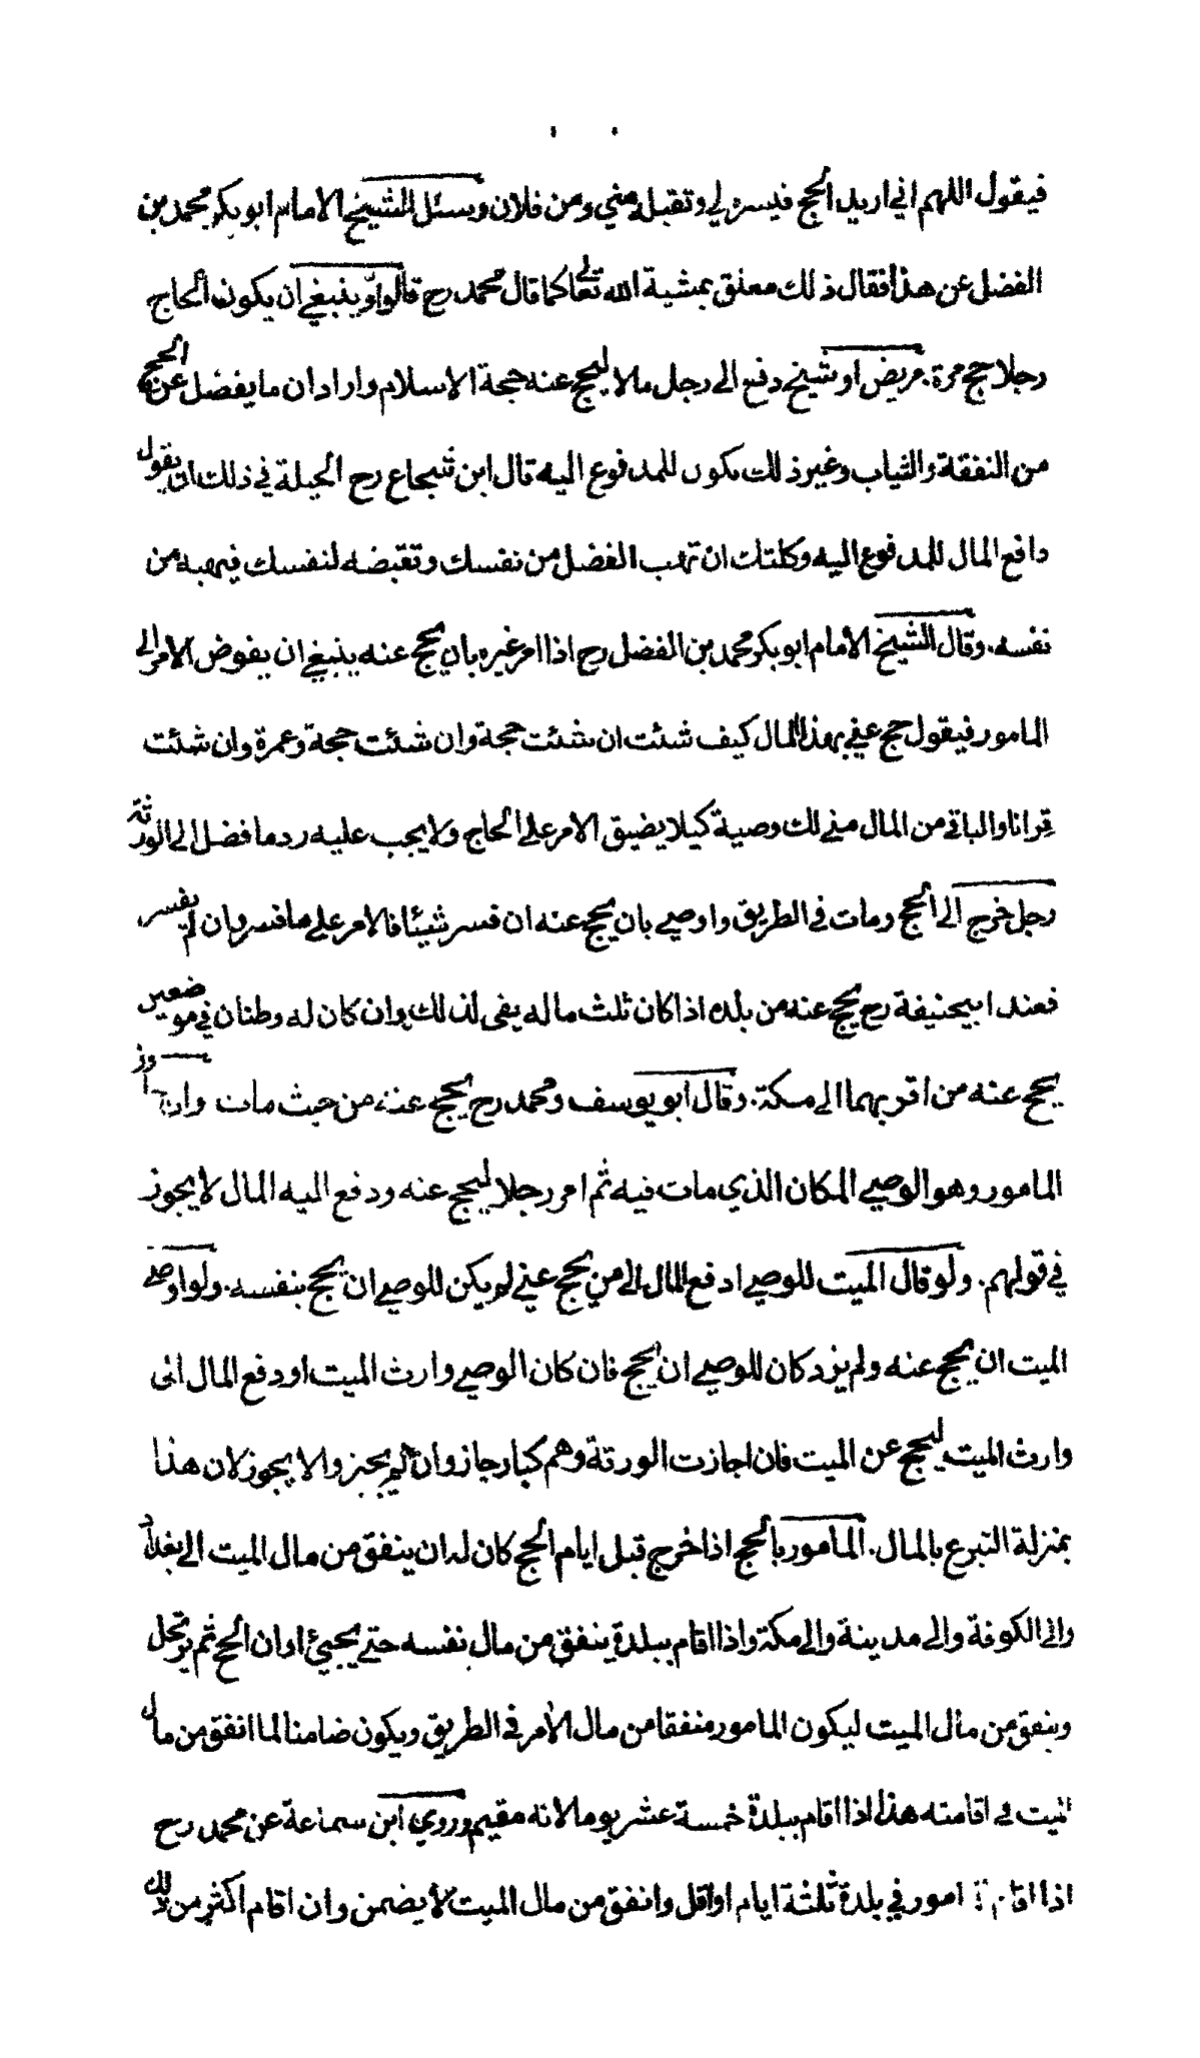 فيقول اللهم اني اريد الحج فيسره لي وتقبله مني ومن فلان وسئل الشيخ الامام ابو بكر محمد بن
الفضل عن هذا فقال ذلك معلق بمشية الله تعالى كما قال محمد رح قالوا وينبغي ان يكون الحاج
رجلا حج مرة. مريض او شيخ دفع الى رجل مالا ليحج عنه حجة الاسلام واراد ان ما يفضل عن الحج
من النفقة والثياب وغير ذلك يكون للمدفوع اليه قال ابن شجاع رح الحيلة في ذلك ان يقول
دافع المال للمدفوع اليه وكلتك ان تهب الفضل من نفسك وتقبضه لنفسك فيهبه من
نفسه. وقال الشيخ الأمام ابو بكر محمد بن الفضل رح اذا امر غيره بان يحج عنه ينبغي ان يفوض الامر الى
المامور فيقول حج عني بهذا المال كيف شئت ان شئت حجة وان شئت حجة وعمرة وان شئت
قرانا والباقي من المال مني لك وصية كيلا يضيق الامر على الحاج ولا يجب عليه رد ما فضل الى الورثة
رجل خرج الى الحج ومات في الطريق واوصى بان يحج عنه ان فسر شيئا فالامر على ما فسر وان لم يفسر
فعند ابيحنيفة رح يحج عنه من بلده اذا كان ثلث ماله يفى لذلك وان كان له وطنان في موضعين
يحج عنه من اقربهما الى مكة. وقال ابو يوسف ومحمد رح يحج عنه من حيث مات
المامور وهو الوصي المكان الذي مات فيه ثم امر رجلا ليحج عنه ودفع اليه المال لا يجوز
في قولهم. ولو قال الميت للوصي ادفع المال الى من يحج عني لم يكن للوصي ان يحج بنفسه. ولو اوصى
الميت ان يحج عنه ولم يزد كان للوصي ان يحج فان كان الوصي وارث الميت او دفع المال الى
وارث الميت ليحج عن الميت فان اجازت الورثة وهم كبار جاز وان لم يجيزوا لا يجوز لان هذا
بمنزلة التبرع بالمال. المامور بالحج اذا خرج قبل ايام الحج كان له ان ينفق من مال الميت الى بغداد
والى الكوفة والى مدينة والى مكة واذا اقام ببلدة ينفق من مال نفسه حتى يجيئ اوان الحج ثم يرتحل
وينفق من مال الميت ليكون المامور منفقا من مال الأمر في الطريق ويكون ضامنا لما انفق من مال
الميت في اقامته هذا اذا اقام ببلدة خمسة عشر يوما لانه مقيم وروي ابن سماعة عن محمد رح
اذا اقام المامور في بلدة ثلثة ايام او اقل وانفق من مال الميت لا يضمن وان اقام اكثر من ذلك